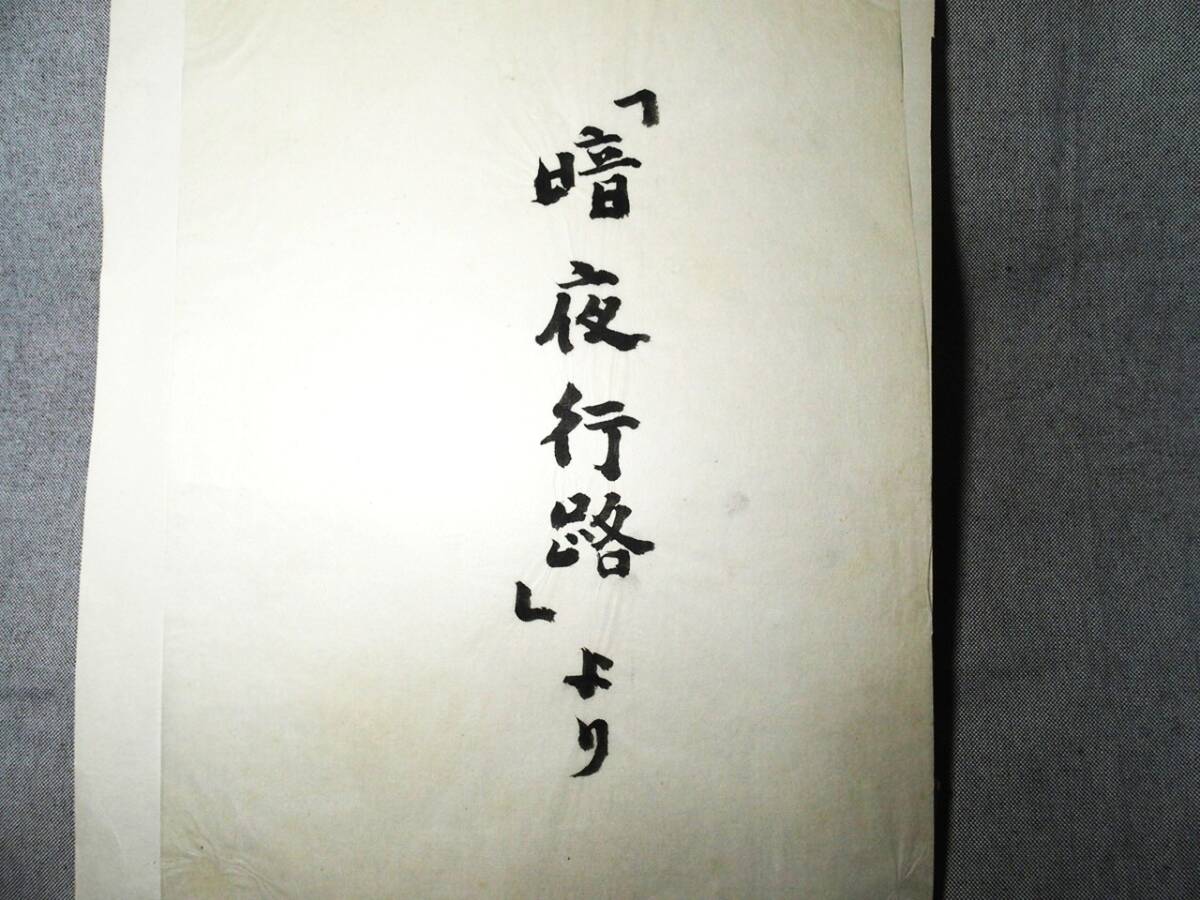 「暗夜行路」より